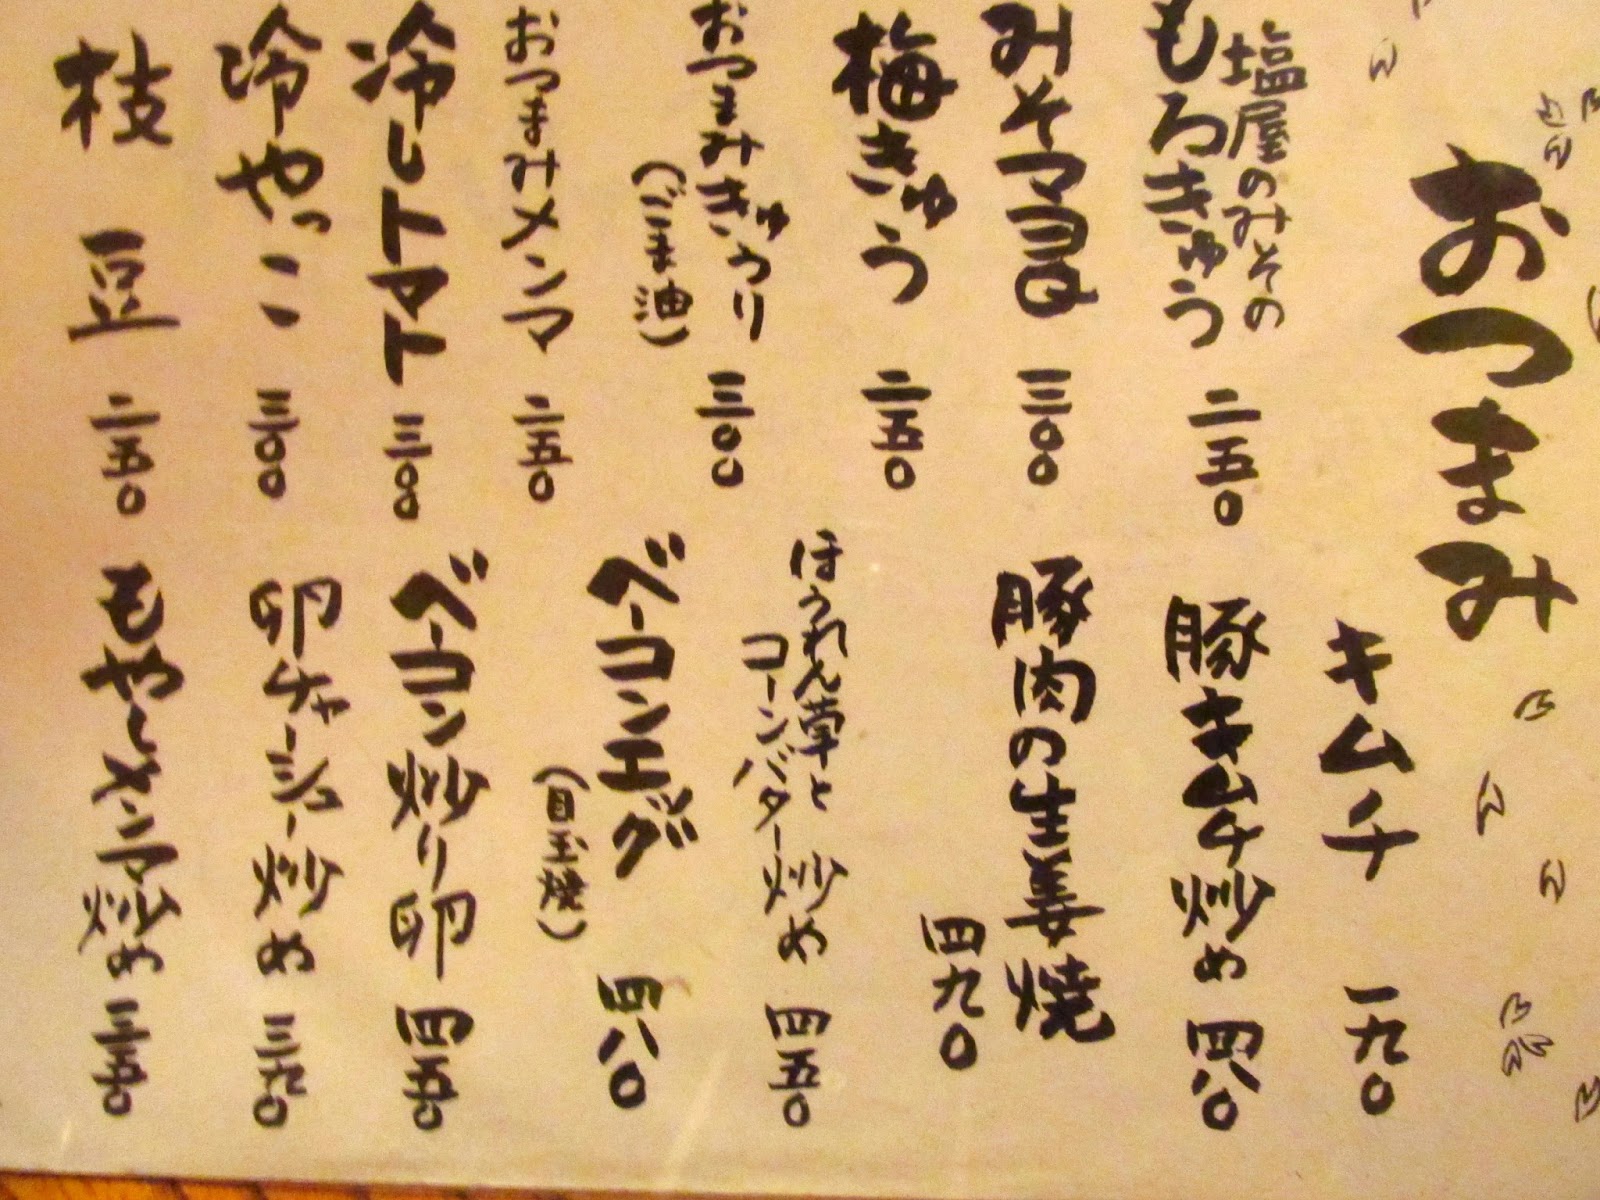 おつまみ
塩屋のみその
もろきゅう 二五〇
みそマヨ君 三〇〇
梅きゅう 二五〇
おつまみきゅうり
(ごま油) 三〇〇
おつまみメンマ 二五〇
冷しトマト 三〇〇
冷やっこ 三〇〇
枝豆 二五〇
キムチ 一九〇
豚キムチ炒め 四八〇
豚肉の生姜焼 四九〇
ほうれん草と
コーンバター炒め 四五〇
ベーコンエッグ
(目玉焼) 四八〇
ベーコン炒り卵 四五〇
卵チャーシュー炒め 三九〇
もやしメンマ炒め 三五〇